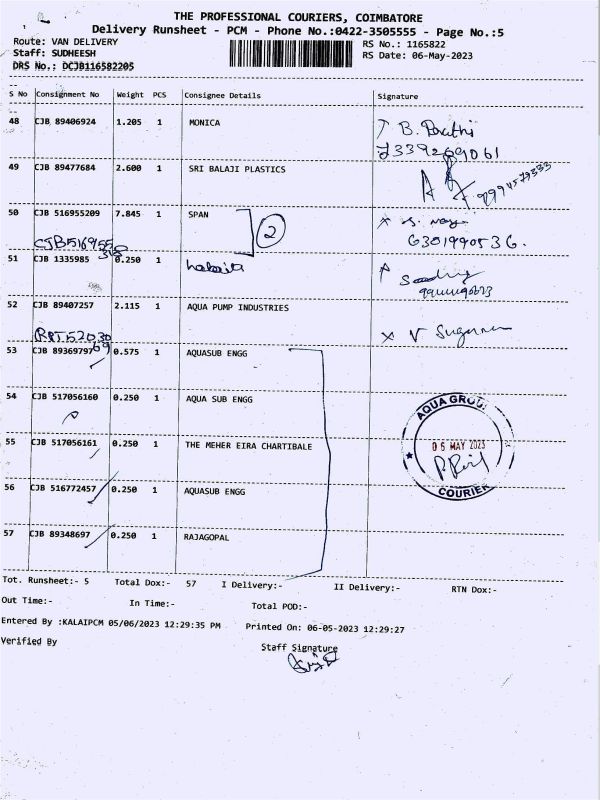 THE PROFESSIONAL COURIERS, COIMBATORE
Delivery Runsheet - PCM - Phone No.:0422-3505555 - Page No.:5
Route: VAN DELIVERY
RS No.: 1165822
Staff: SUDHEESH
RS Date: 06-May-2023
DRS No.: DCJB116582205
S No Consignment No Weight PCS Consignee Details Signature
48 CJB 89406924 1.205 1 MONICA
49 CJB 89477684 2.600 1 SRI BALAJI PLASTICS
50 CJB 516955209 7.845 1 SPAN
2
6301990536.
51 CJB 1335985 0.250 1
52 CJB 89407257 2.115 1 AQUA PUMP INDUSTRIES
53 CJB 89369797 0.575 1 AQUASUB ENGG
54 CJB 517056160 0.250 1 AQUA SUB ENGG
AQUA GROUP
55 CJB 517056161 0.250 1 THE MEHER EIRA CHARTIBALE
06 MAY 2023
56 CJB 516772457 0.250 1 AQUASUB ENGG
COURIER
57 CJB 89348697 0.250 1 RAJAGOPAL
Tot. Runsheet:- 5 Total Dox:- 57 I Delivery:- II Delivery:- RTN Dox:-
Out Time:- In Time:- Total POD:-
Entered By :KALAIPCM 05/06/2023 12:29:35 PM Printed On: 06-05-2023 12:29:27
Verified By Staff Signature